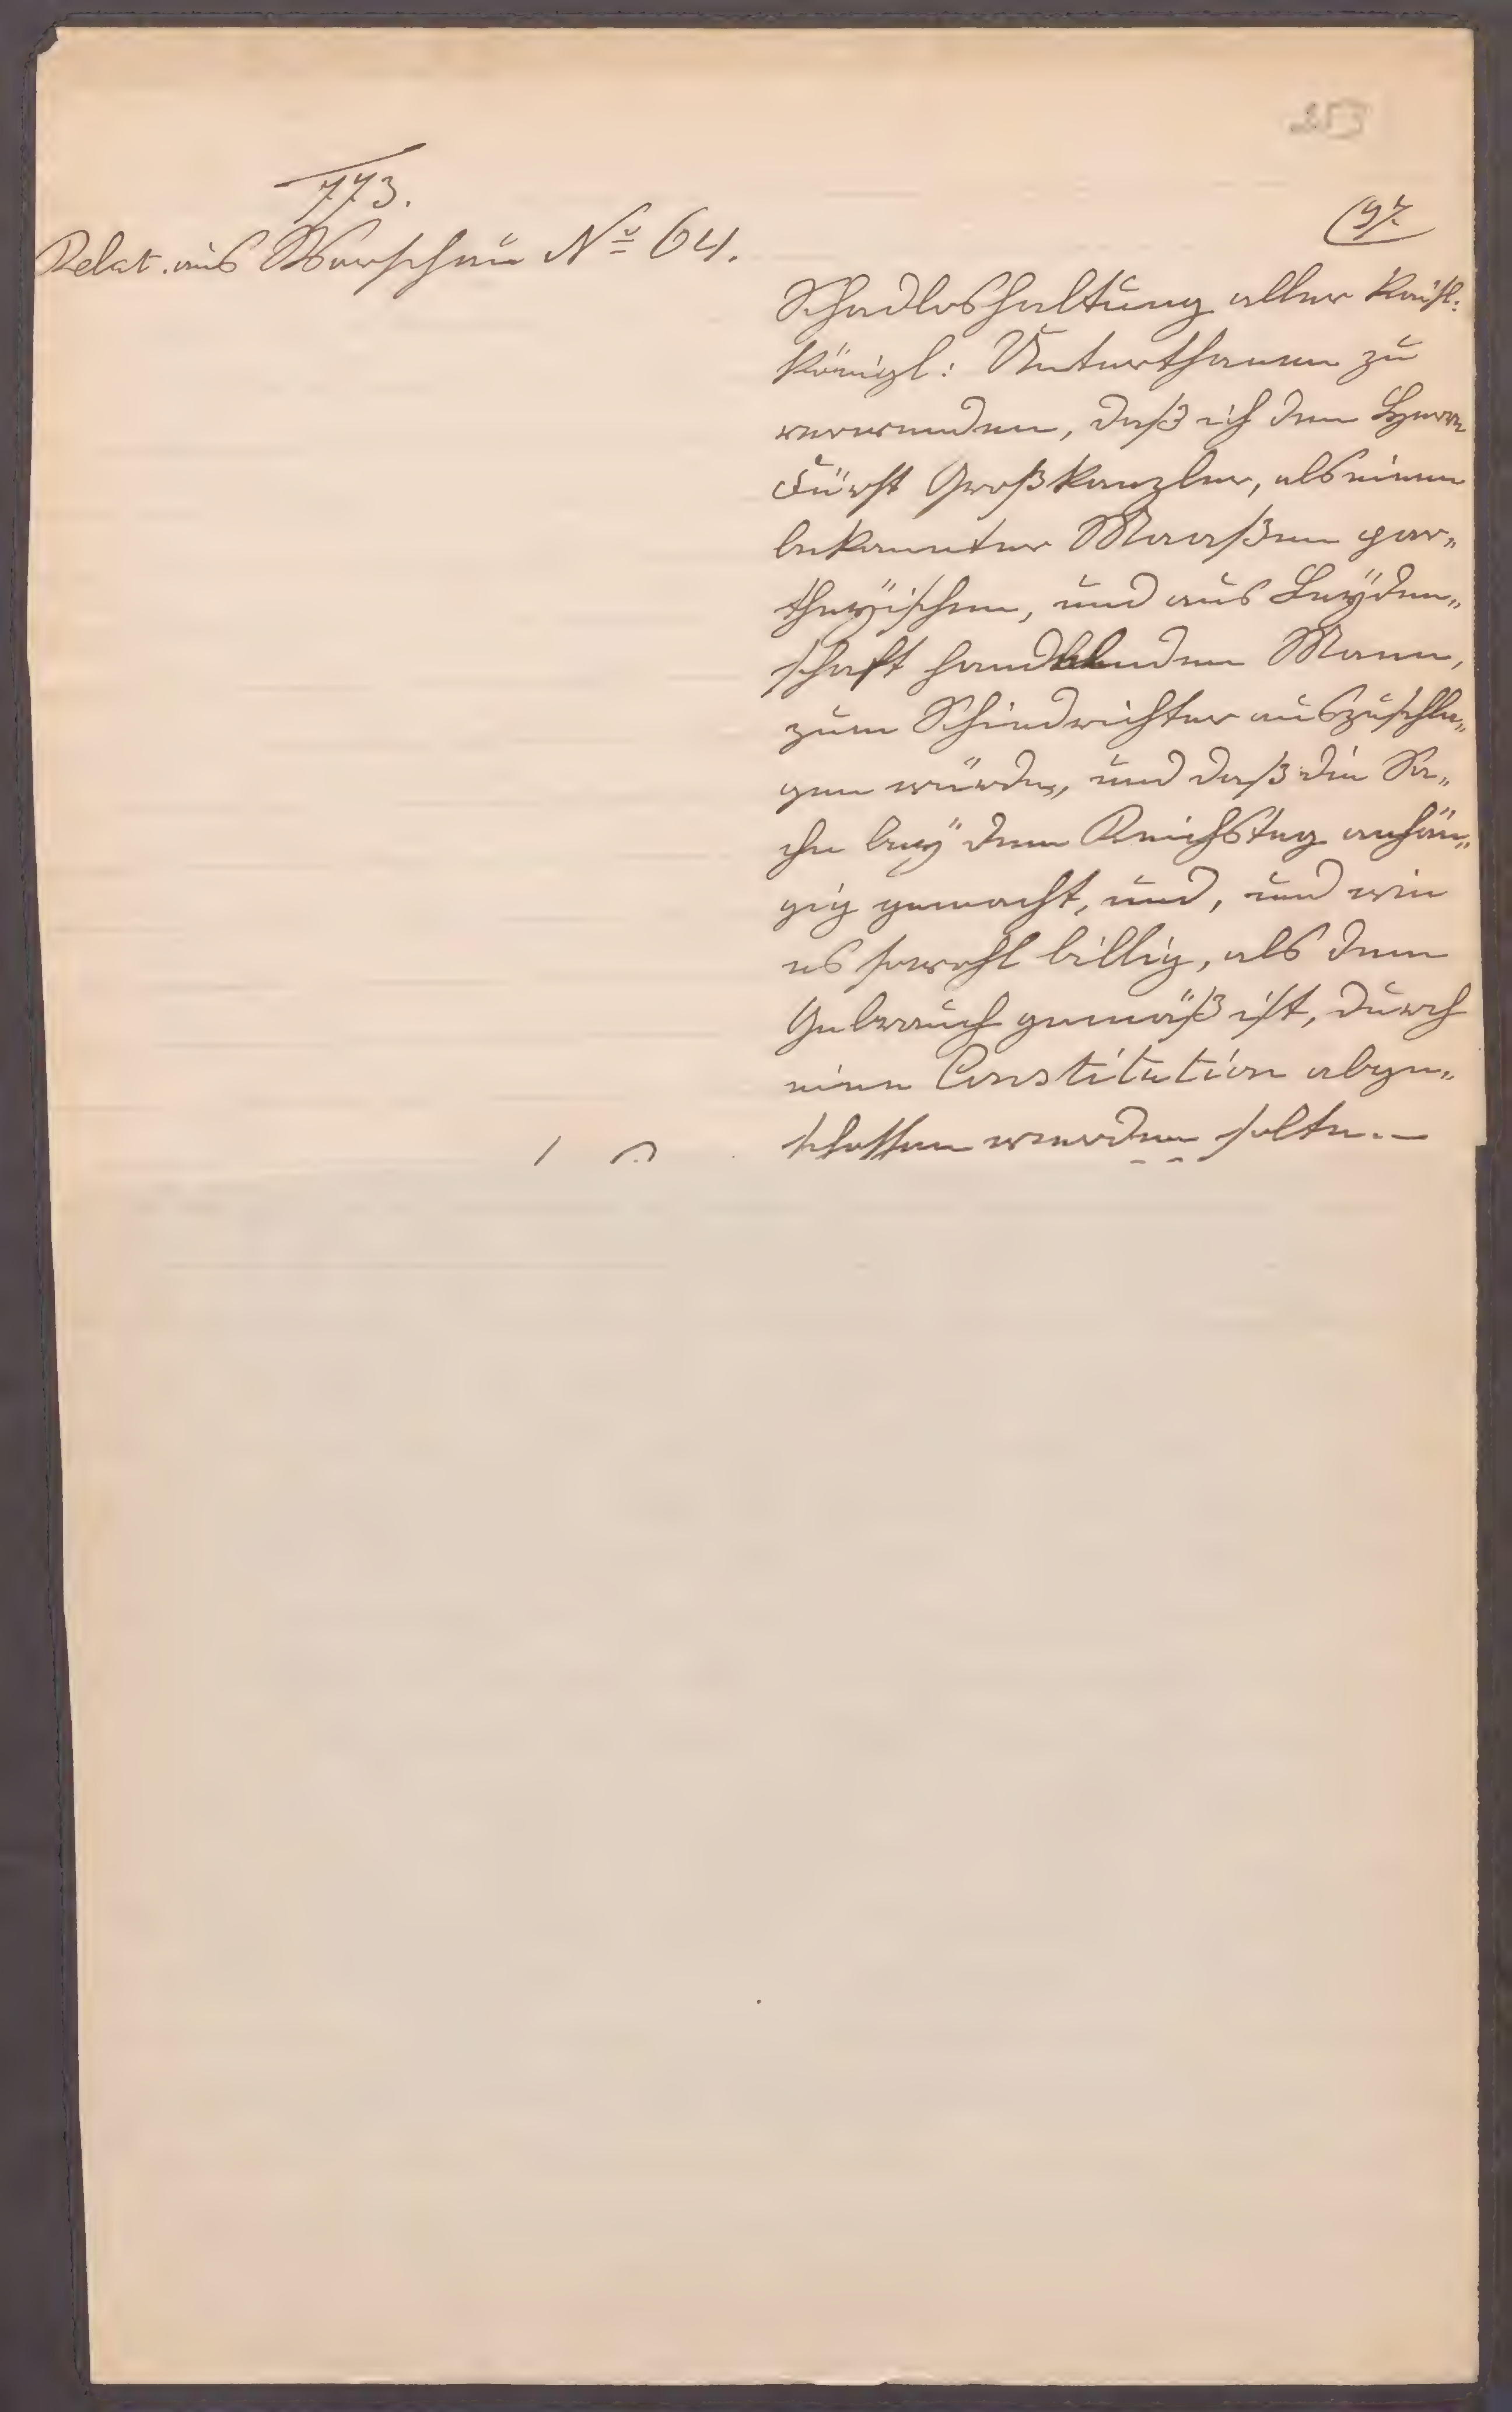 253
773.
Relat. aus Warschau No 64.
97.
Schadloshaltung aller Kaisl:
Königl: Unterthanen zu
verwenden, daß ich den Herrn
Fürst Großkanzler, als einen
bekannter Maaßen par„
theyischen, und aus Leyden„
schaft handlenden Mann,
zum Schiedrichter auszuschla„
gen würde, und daß die Sa„
che bey dem Reichstag anhän„
gig gemacht, und, und wie
es sowohl billig, als dem
Gebrauch gemäß ist, durch
eine Constitution abge„
schlossen werden solte.—